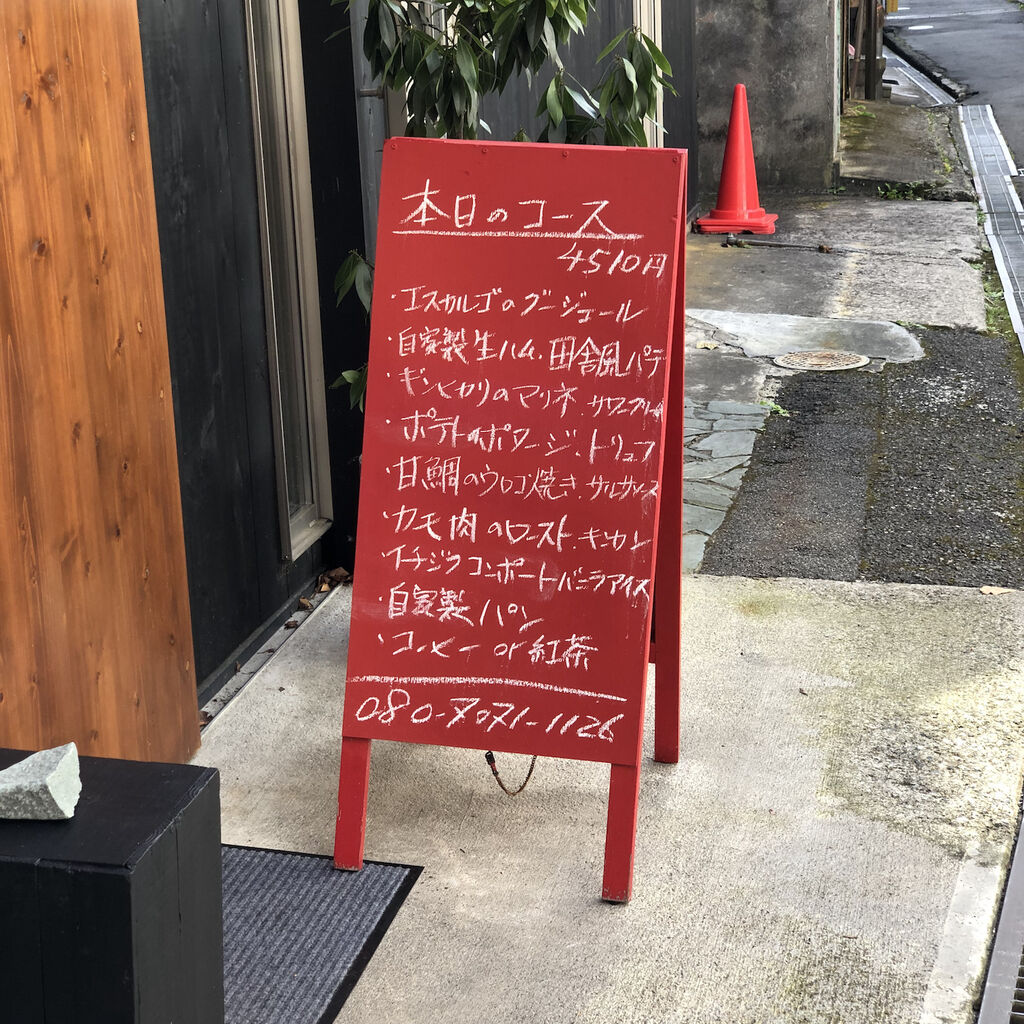 本日のコース
4510円
・エスカルゴのグージェール
・自家製生ハム.田舎風パテ
・ギンヒカリのマリネ.サワークリーム
・ポテトのポタージュ.トリュフ
・甘鯛のウロコ焼き.サルサソース
・カモ肉のロースト.キンカン
・イチジクコンポートバニラアイス
・自家製パン
・コーヒー or 紅茶
080-7071-1126